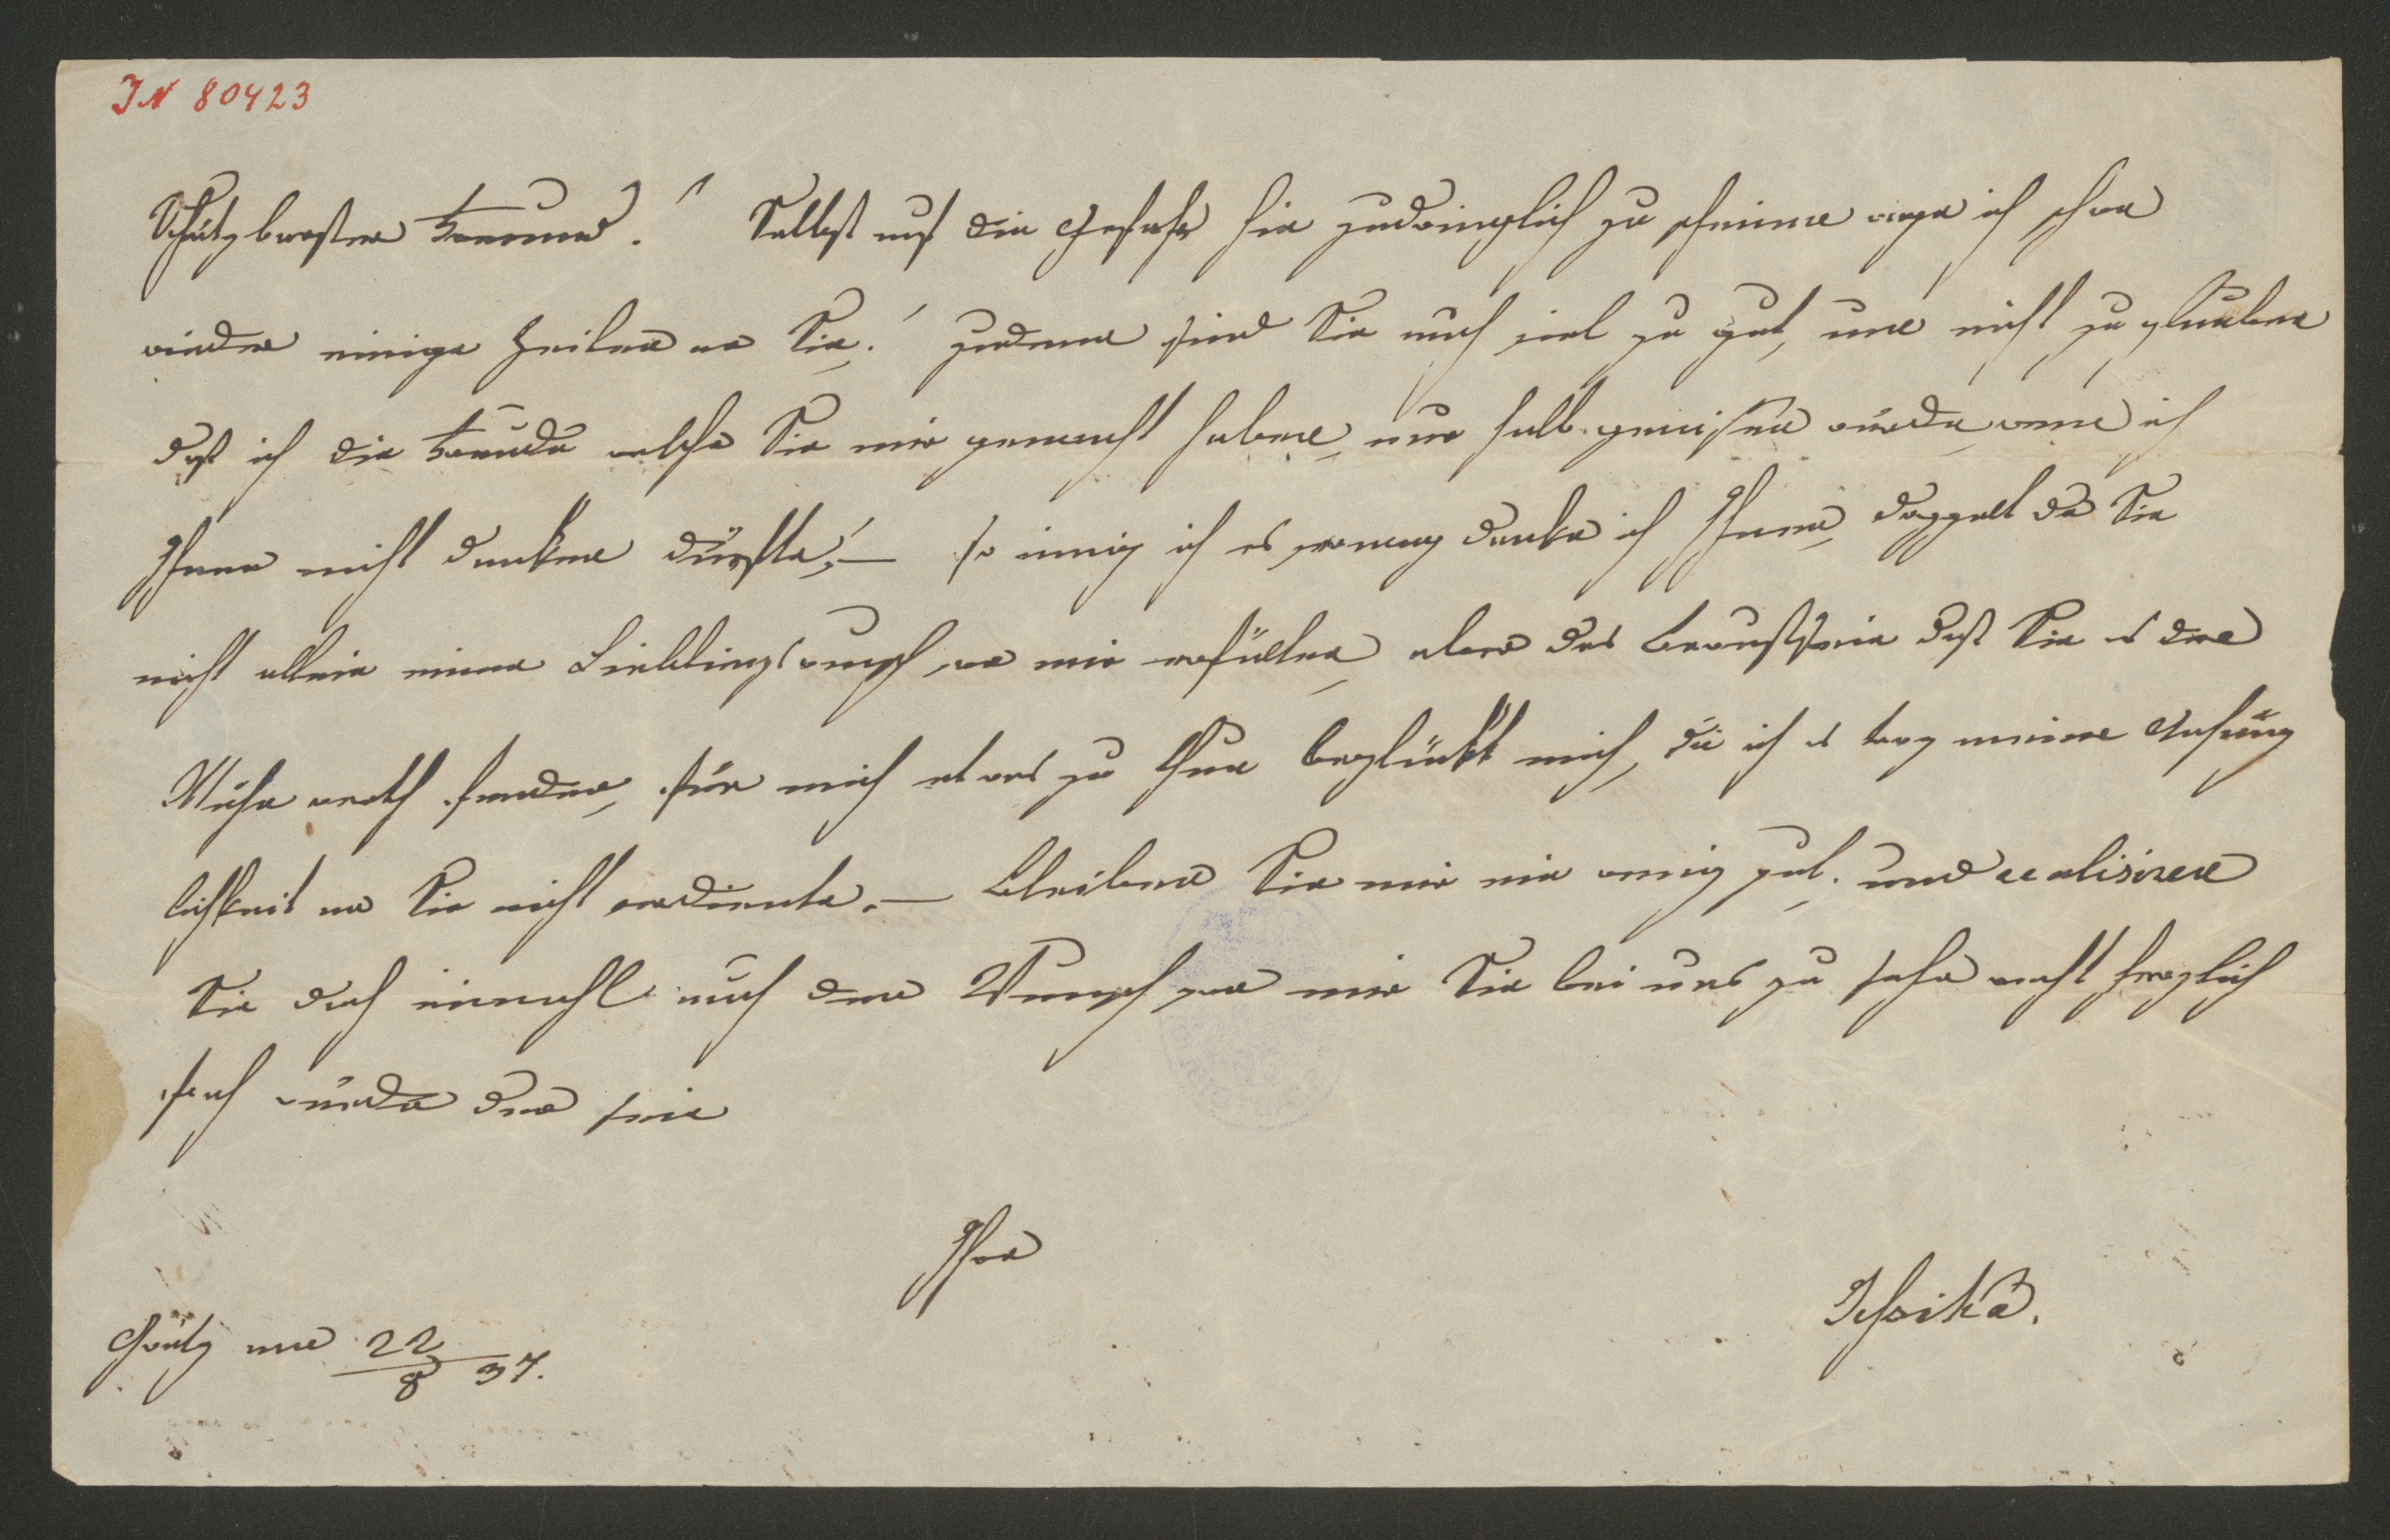 IN 80423
Schätzbarster Freund! Selbst auf die Gefahr hin zudringlich zu scheinen wage ich schon
wieder einige Zeilen an Sie! zudem sind Sie auch viel zu gut, um nicht zu glauben
daß ich die Freude welche Sie mir gemacht haben, nur halb genießen würde, wenn ich
Ihnen nicht danken dürfte;— so innig ich es vermag danke ich Ihnen, doppelt da Sie
nicht allein einen Lieblingswunsch von mir erfüllten, aber das Bewußtsein daß Sie es der
Mühe werth fanden, für mich etwas zu thun beglückt mich, da ich es trotz meiner Anhäng
lichkeit an Sie nicht verdiente.— Bleiben Sie mir ein wenig gut. und realisiren
Sie doch einmahl auch den Wunsch von mir Sie bei uns zu sehen recht herzlich
froh würde da sein
Ihre
Grätz am 22/8 37.